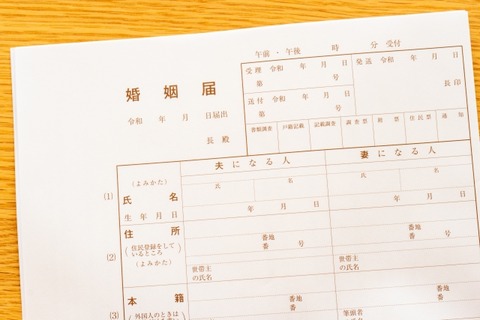 午前・午後 時 分 受付
受理 令和 年 月 日
第 号
発送 令和 年 月 日
送付 令和 年 月 日
第 号
長印
書類調査 戸籍記載 記載調査 調査票 附票 住民票 通知
婚姻届
令和 年 月 日届出
長 殿
夫になる人 妻になる人
(1)
(よみかた)
氏 名 氏 名
氏名
生年月日 年 月 日 年 月 日
(2)
住所
(住民登録をしているところ)
(よみかた)
番地
番 号
番地
番 号
世帯主
の氏名
世帯主
の氏名
(3)
本籍
外国人のときは
番地
番
番地
番
筆頭者
の氏名
筆頭者